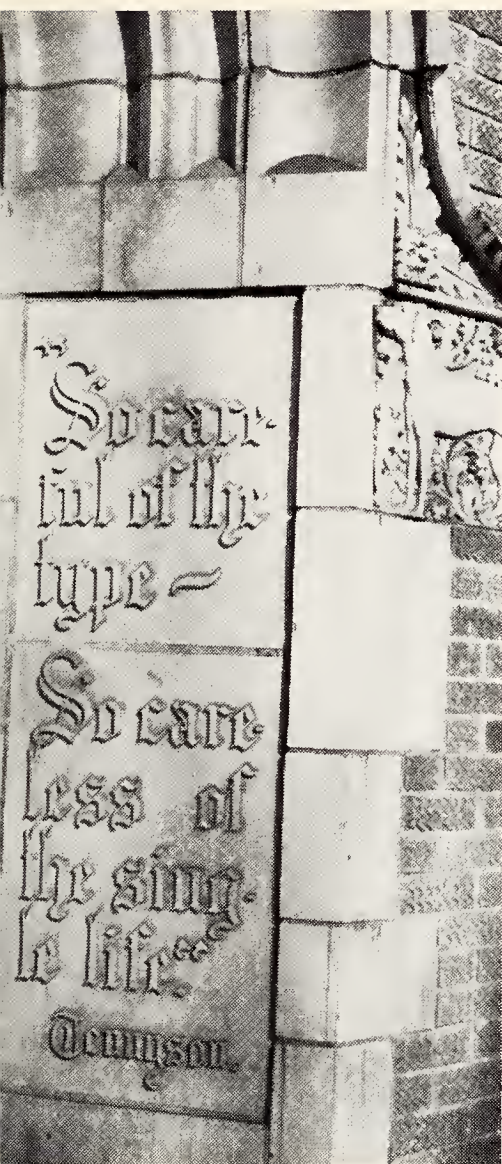 "So care-
ful of the
type ~
So care-
less of
the sing-
le life."
Tennyson.